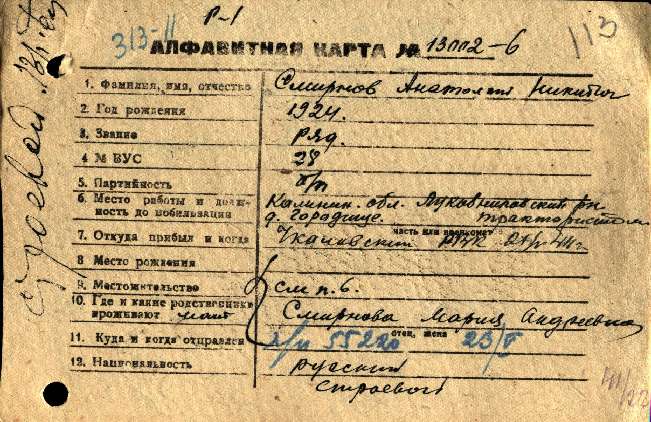 Р-1
313-II
113
АЛФАВИТНАЯ КАРТА № 13002-6
1. Фамилия, имя, отчество Смирнов Анатолий Никитич
2. Год рождения 1924.
3. Звание ряд.
4 № ВУС 28
5. Партийность б/п
6. Место работы и долж-
ность до мобилизации Калинин. обл. Луковниковский р-н
д. Городище. тракторист
7. Откуда прибыл и когда Чкаловский РВК
часть или военкомат
8 Место рождения
9. Местожительство см п. 6.
10. Где и какие родственники
проживают мать Смирнова Мария Андреевна
отец, жена
11. Куда и когда отправлен п/п 55220 23/V
12. Национальность русский
строевой